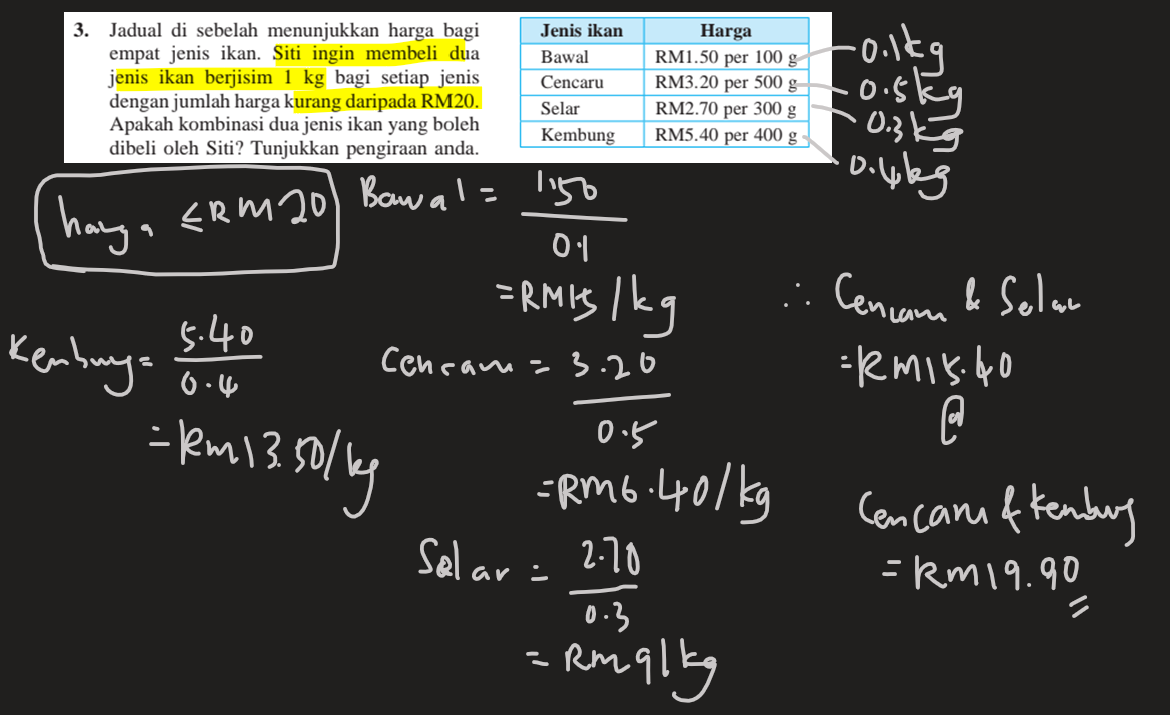 3. Jadual di sebelah menunjukkan harga bagi
empat jenis ikan. Siti ingin membeli dua
jenis ikan berjisim 1 kg bagi setiap jenis
dengan jumlah harga kurang daripada RM20.
Apakah kombinasi dua jenis ikan yang boleh
dibeli oleh Siti? Tunjukkan pengiraan anda.
Jenis ikan Harga
Bawal RM1.50 per 100 g
Cencaru RM3.20 per 500 g
Selar RM2.70 per 300 g
Kembung RM5.40 per 400 g
0.1kg
0.5kg
0.3kg
0.4kg
harga ≤RM20
Bawal = 1.50
0.1
=RM15/kg
Kembung= 5.40
0.4
=RM13.50/kg
Cencaru = 3.20
0.5
=RM6.40/kg
Selar = 2.70
0.3
= RM9/kg
∴ Cencaru & Selar
=RM15.40
@
Cencaru & Kembung
= RM19.90